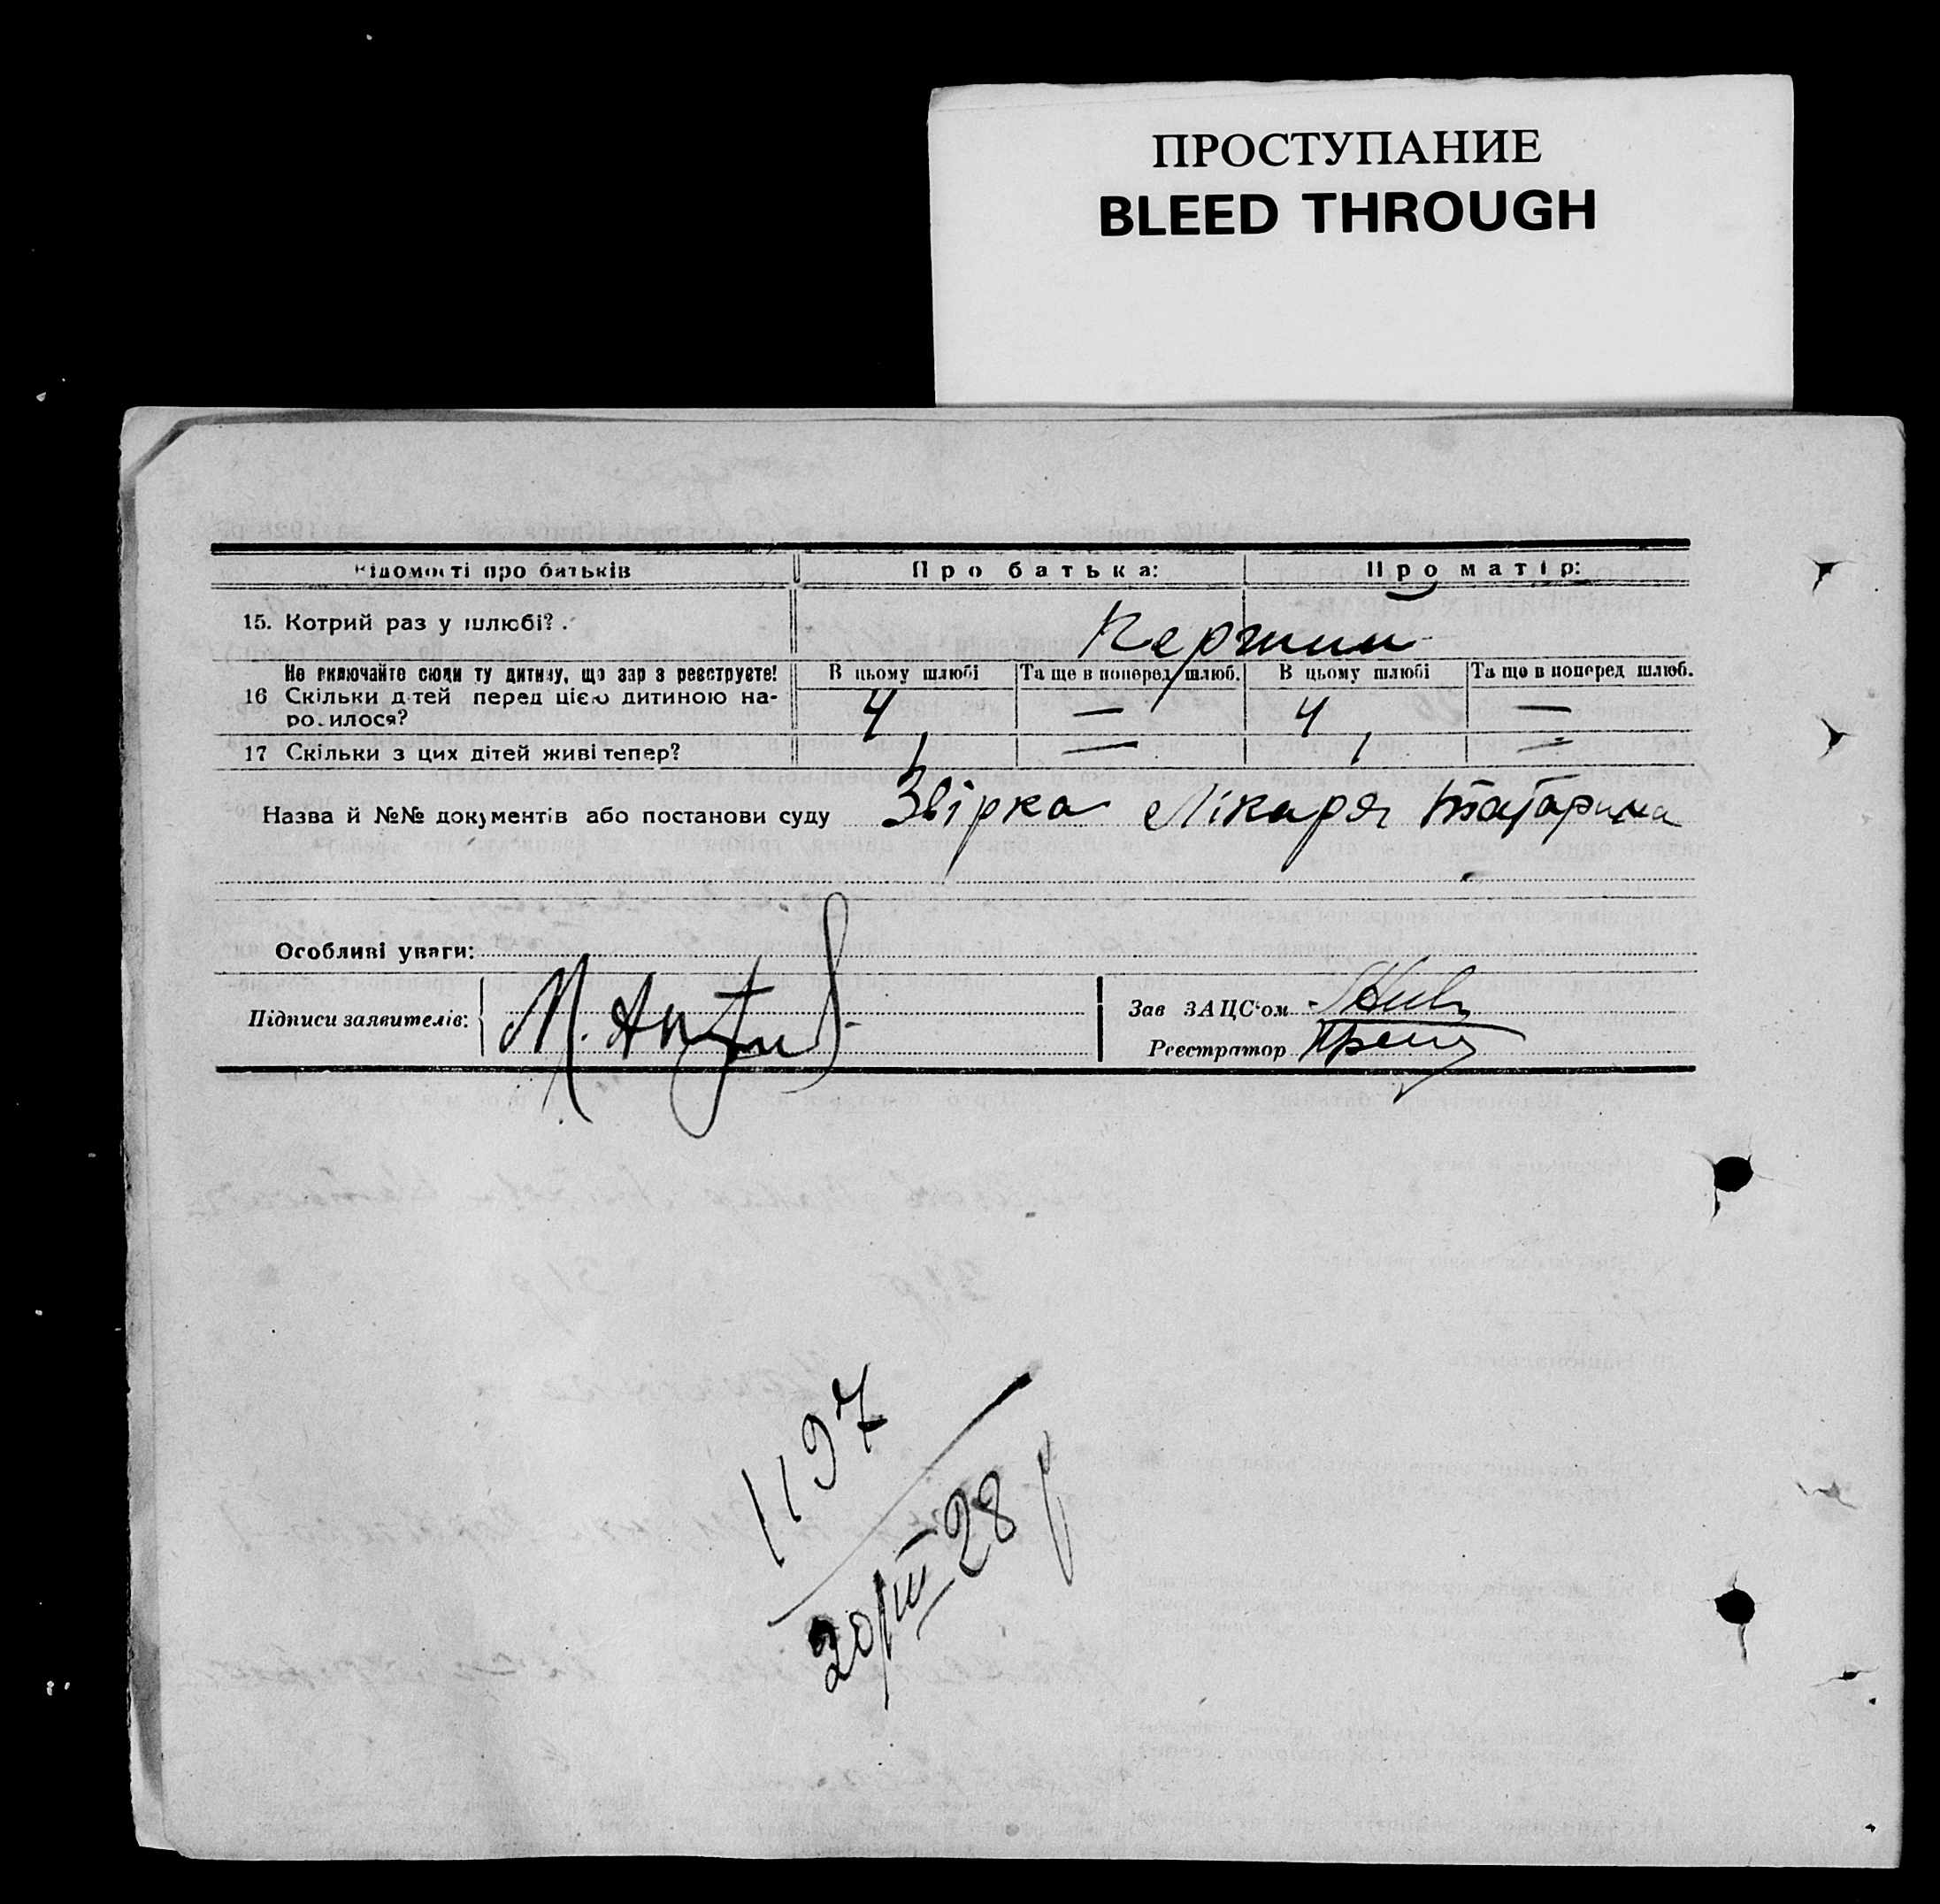 ПРОСТУПАНИЕ
BLEED THROUGH
Відомості про батьків Про батька: Про матір:
15. Котрий раз у шлюбі? . Першии
Не включайте сюди ту дитину, що зараз реєструєте! В цьому шлюбі Та ще в поперед. шлюб. В цьому шлюбі Та ще в поперед шлюб.
16 Скільки дітей перед цією дитиною на-
родилося? 4 — 4 —
17 Скільки з цих дітей живі тепер? 1 — 1 —
Назва й №№ документів або постанови суду Звірка Лікаря Татарина
Особливі уваги:
Підписи заявителів: М.
Зав ЗАЦС‘ом
Реєстратор
1197
20/III 28 р